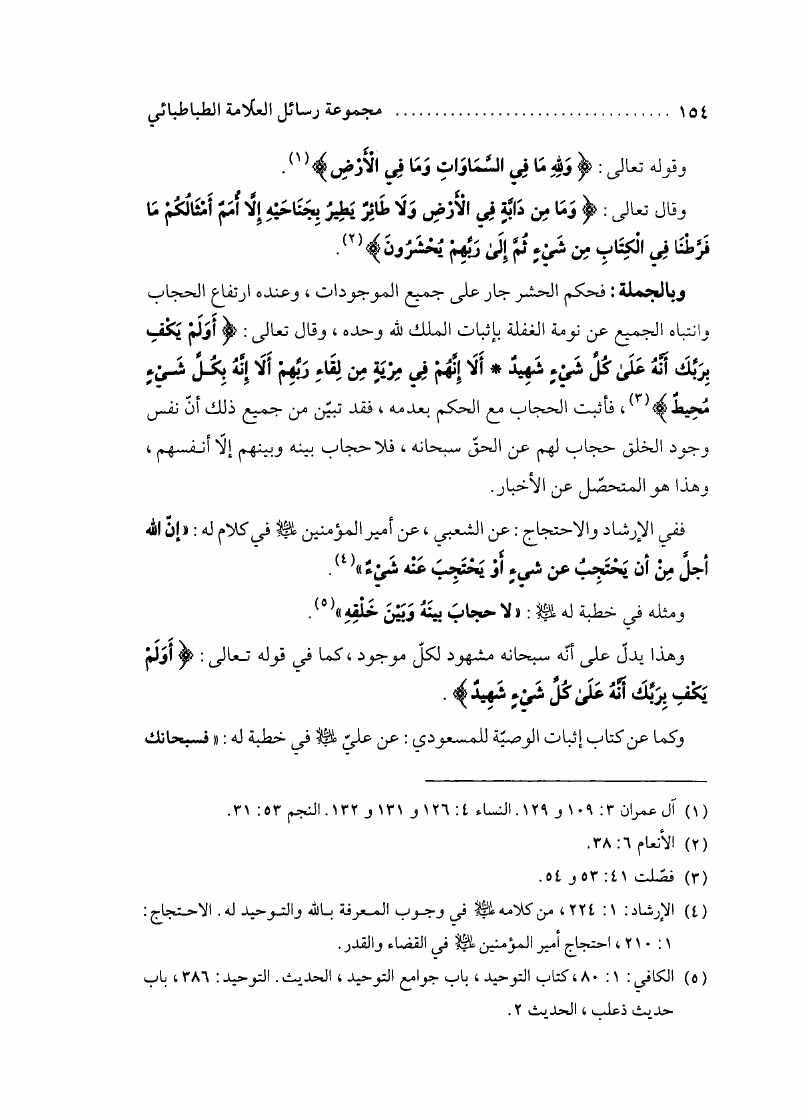 ١٥٤ .................................. مجموعة رسائل العلّامة الطباطبائي
وقوله تعالى : ﴿ وَلِلّٰهِ مَا فِي السَّمَاوَاتِ وَمَا فِي الْأَرْضِ ﴾(١) .
وقال تعالى : ﴿ وَمَا مِن دَابَّةٍ فِي الْأَرْضِ وَلَا طَائِرٌ يَطِيرُ بِجَنَاحَيْهِ إِلَّا أُمَمٌ أَمْثَالُكُمْ مَا
فَرَّطْنَا فِي الْكِتَابِ مِن شَيْءٍ ثُمَّ إِلَىٰ رَبِّهِمْ يُحْشَرُونَ﴾(٢) .
وبالجملة : فحكم الحشر جار على جميع الموجودات ، وعنده ارتفاع الحجاب
وانتباه الجميع عن نومة الغفلة بإثبات الملك لله وحده ، وقال تعالى : ﴿ أَوَلَمْ يَكْفِ
بِرَبِّكَ أَنَّهُ عَلَىٰ كُلِّ شَيْءٍ شَهِيدٌ * أَلَا إِنَّهُمْ فِي مِرْيَةٍ مِن لِقَاءِ رَبِّهِمْ أَلَا إِنَّهُ بِكُلِّ شَيْءٍ
مُحِيطٌ ﴾(٣) ، فأثبت الحجاب مع الحكم بعدمه ، فقد تبيّن من جميع ذلك أنّ نفس
وجود الخلق حجاب لهم عن الحقّ سبحانه ، فلا حجاب بينه وبينهم إلّا أنفسهم ،
وهذا هو المتحصّل عن الأخبار .
ففي الإرشاد والاحتجاج : عن الشعبي ، عن أمير المؤمنين عليه السلام في كلام له : « إنّ الله
أجلَّ مِنْ أن يَحْتَجِبُ عن شيءٍ أوْ يَحْتَجِبَ عَنْه شَيْءٌ »(٤) .
ومثله في خطبة له عليه السلام : « لا حجابَ بينَهُ وَبَيْنَ خَلْقِهِ »(٥) .
وهذا يدلّ على أنّه سبحانه مشهود لكلّ موجود ، كما في قوله تعالى : ﴿ أَوَلَمْ
يَكْفِ بِرَبِّكَ أَنَّهُ عَلَىٰ كُلِّ شَيْءٍ شَهِيدٌ ﴾ .
وكما عن كتاب إثبات الوصيّة للمسعودي : عن عليّ عليه السلام في خطبة له : « فسبحانك
(١) آل عمران ٣: ١٠٩ و ١٢٩ . النساء ٤: ١٢٦ و ١٣١ و ١٣٢ . النجم ٥٣: ٣١.
(٢) الأنعام ٦: ٣٨.
(٣) فصّلت ٤١: ٥٣ و ٥٤.
(٤) الإرشاد: ١: ٢٢٤ ، من كلامه عليه السلام في وجوب المعرفة بالله والتوحيد له . الاحتجاج:
١: ٢١٠ ، احتجاج أمير المؤمنين عليه السلام في القضاء والقدر .
(٥) الكافي: ١: ٨٠ ، كتاب التوحيد ، باب جوامع التوحيد ، الحديث . التوحيد: ٣٨٦ ، باب
حديث ذعلب ، الحديث ٢ .